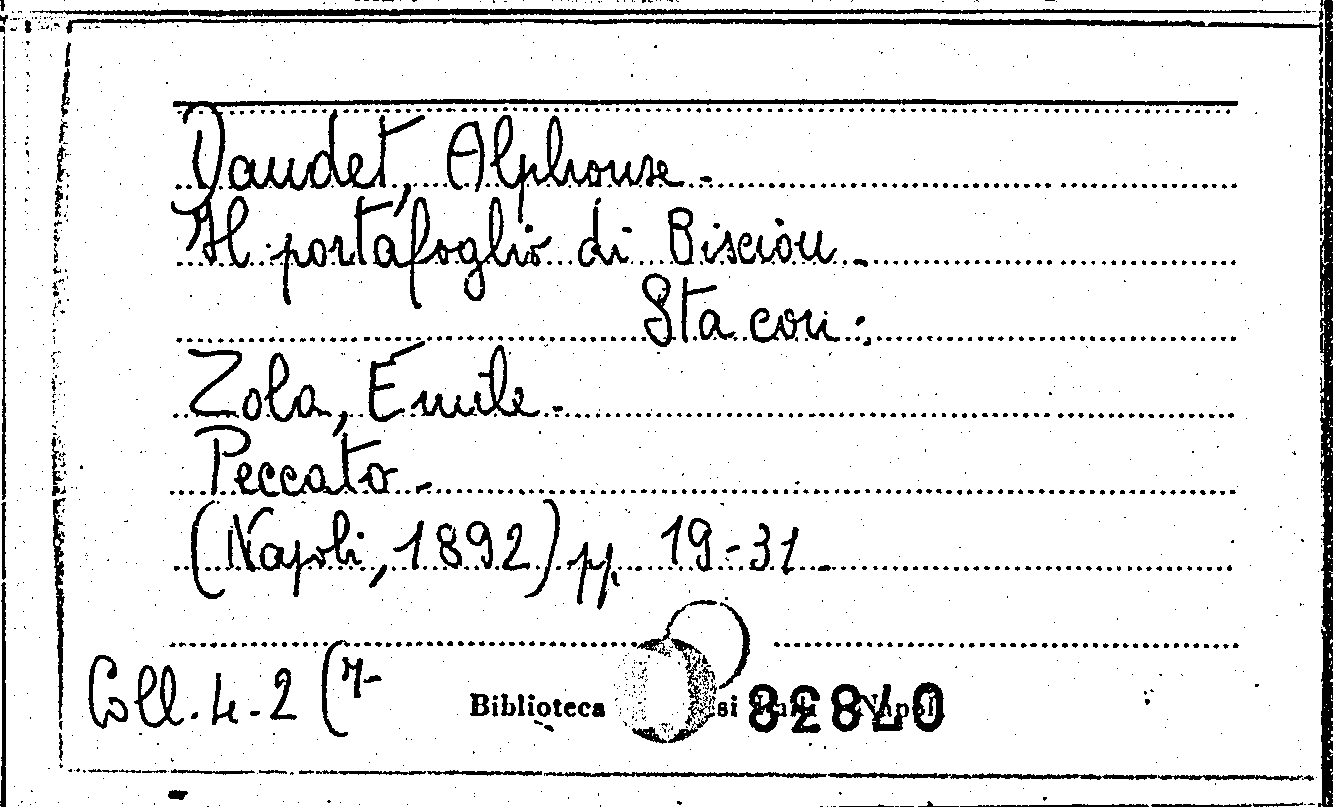 Daudet, Alphonse.-
Il portafoglio di Bisciou.-
Sta con:
Zola, Emile.-
Peccato.-
(Napoli, 1892) pp. 19-31.-
Coll. 4-2 (7-
Biblioteca